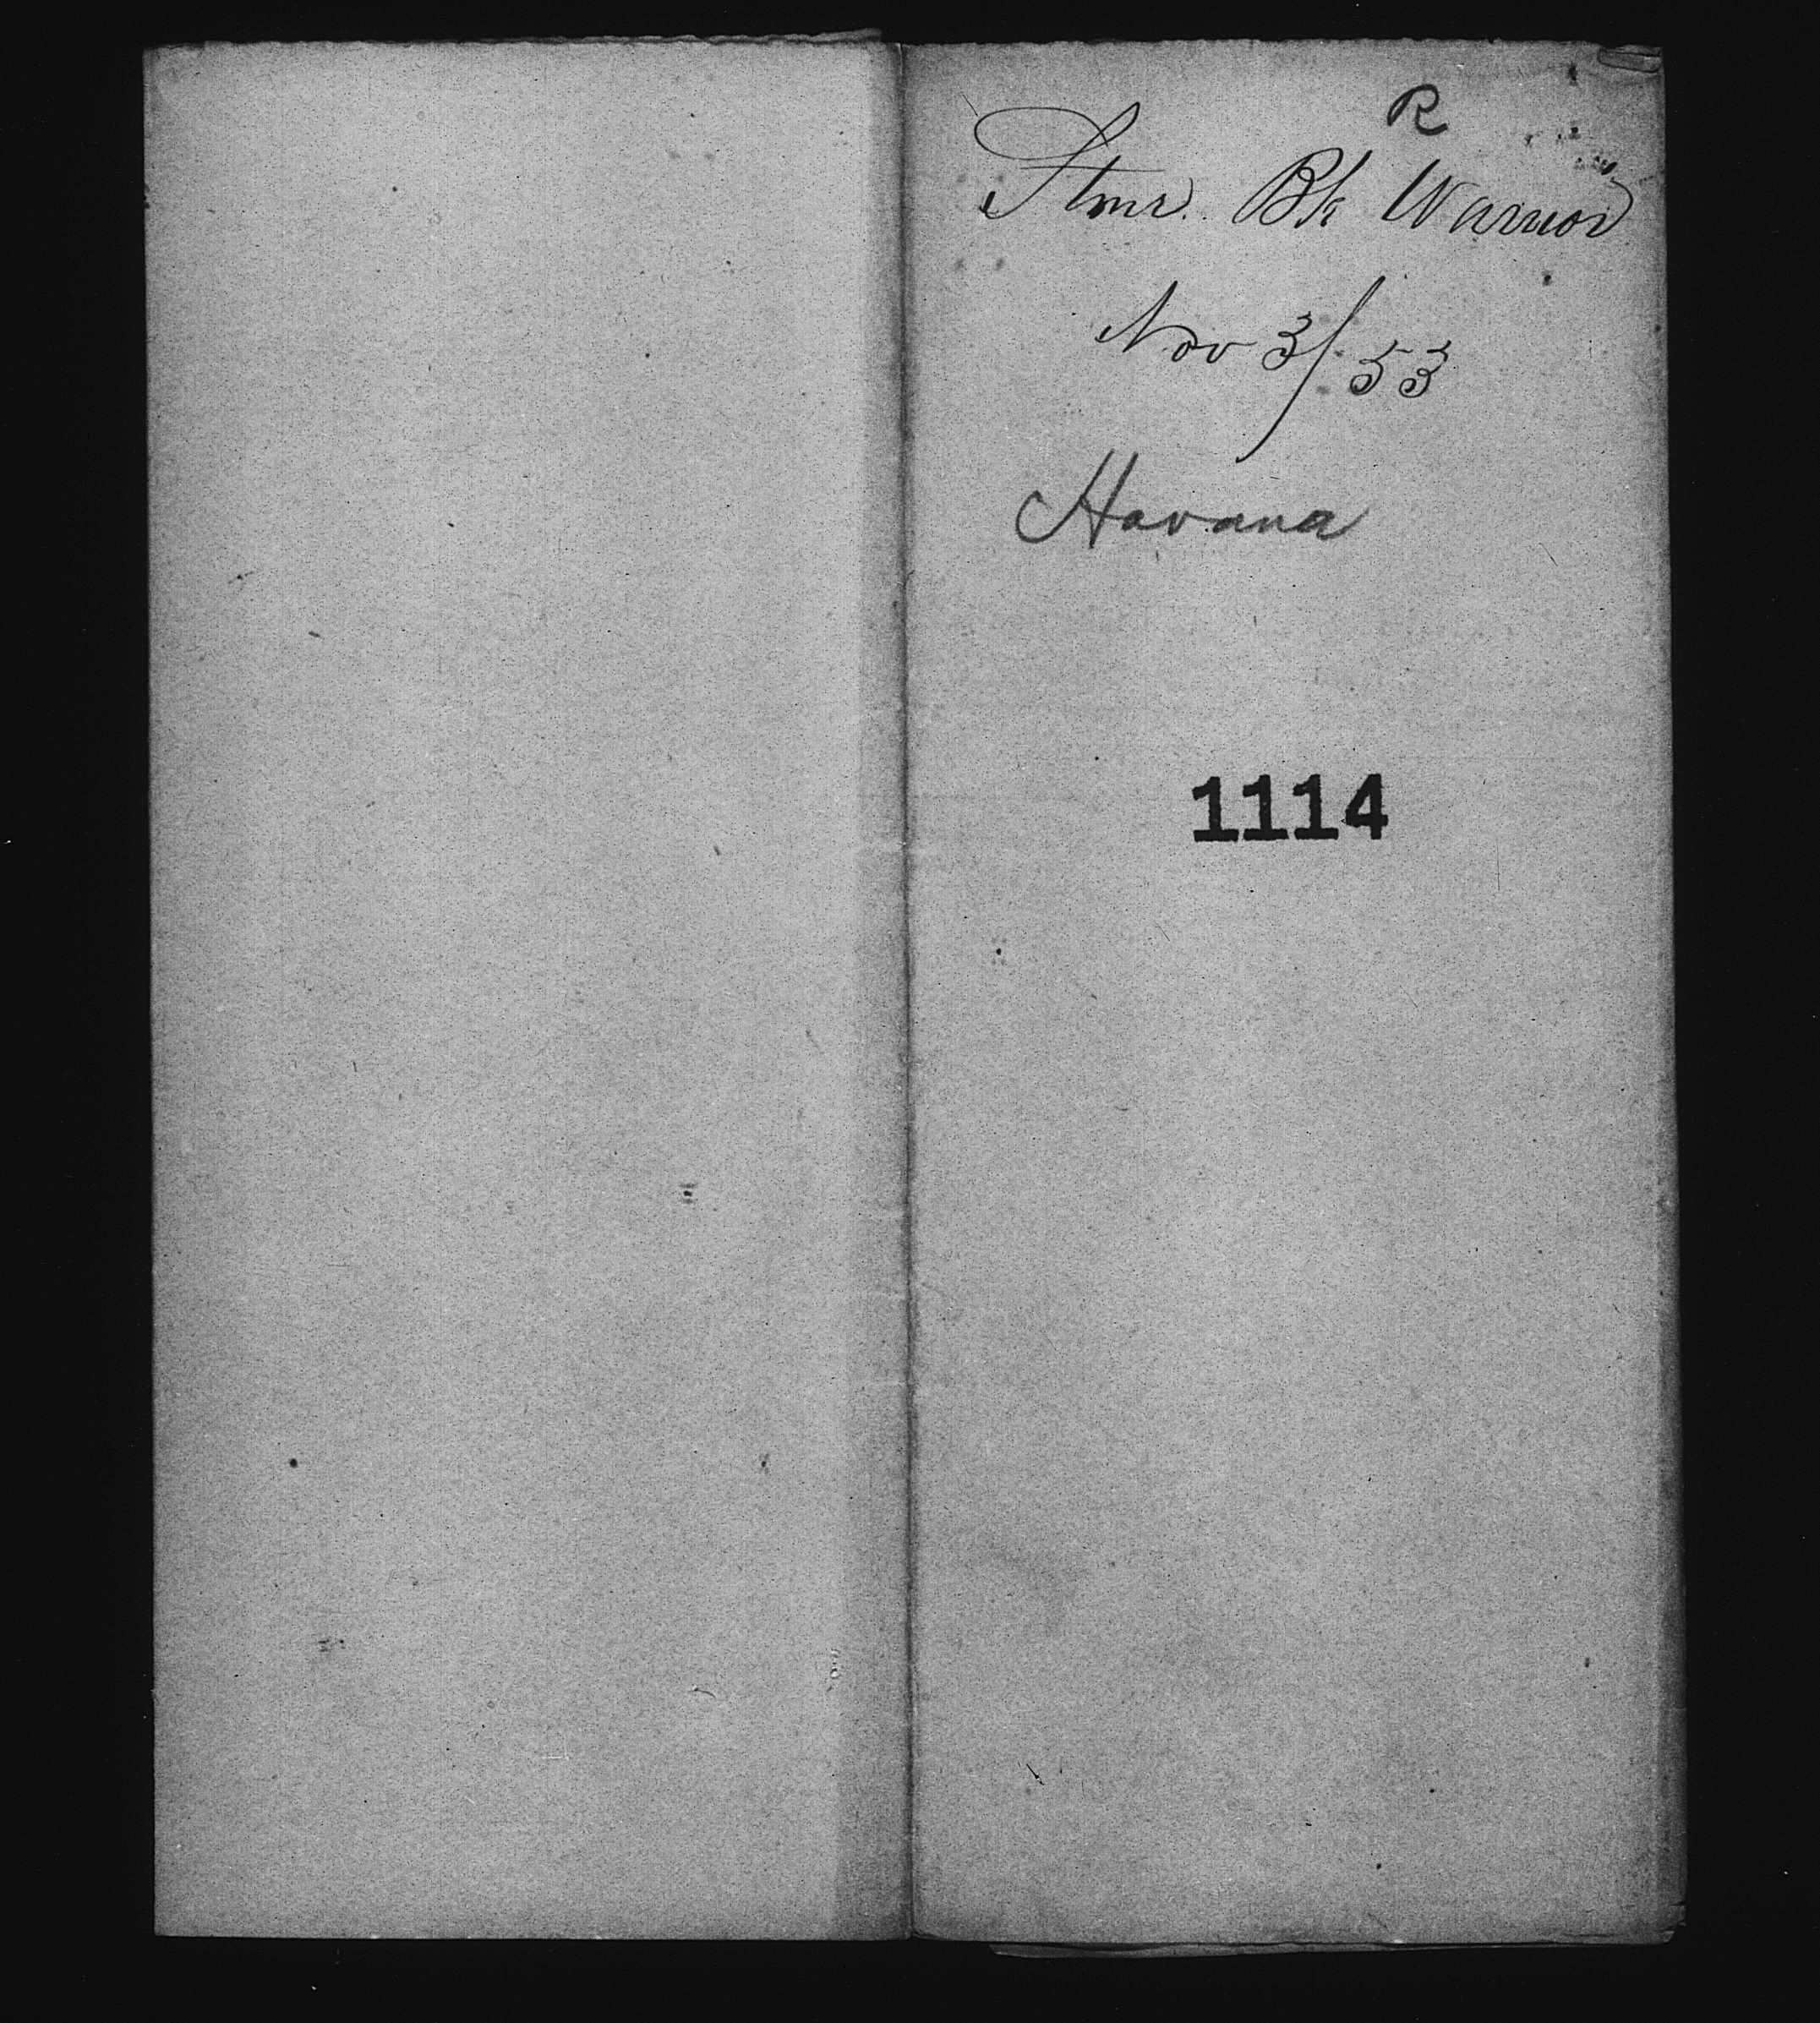 R
Stmr. Bk Warrior
Nov 3/53
Havana
1114